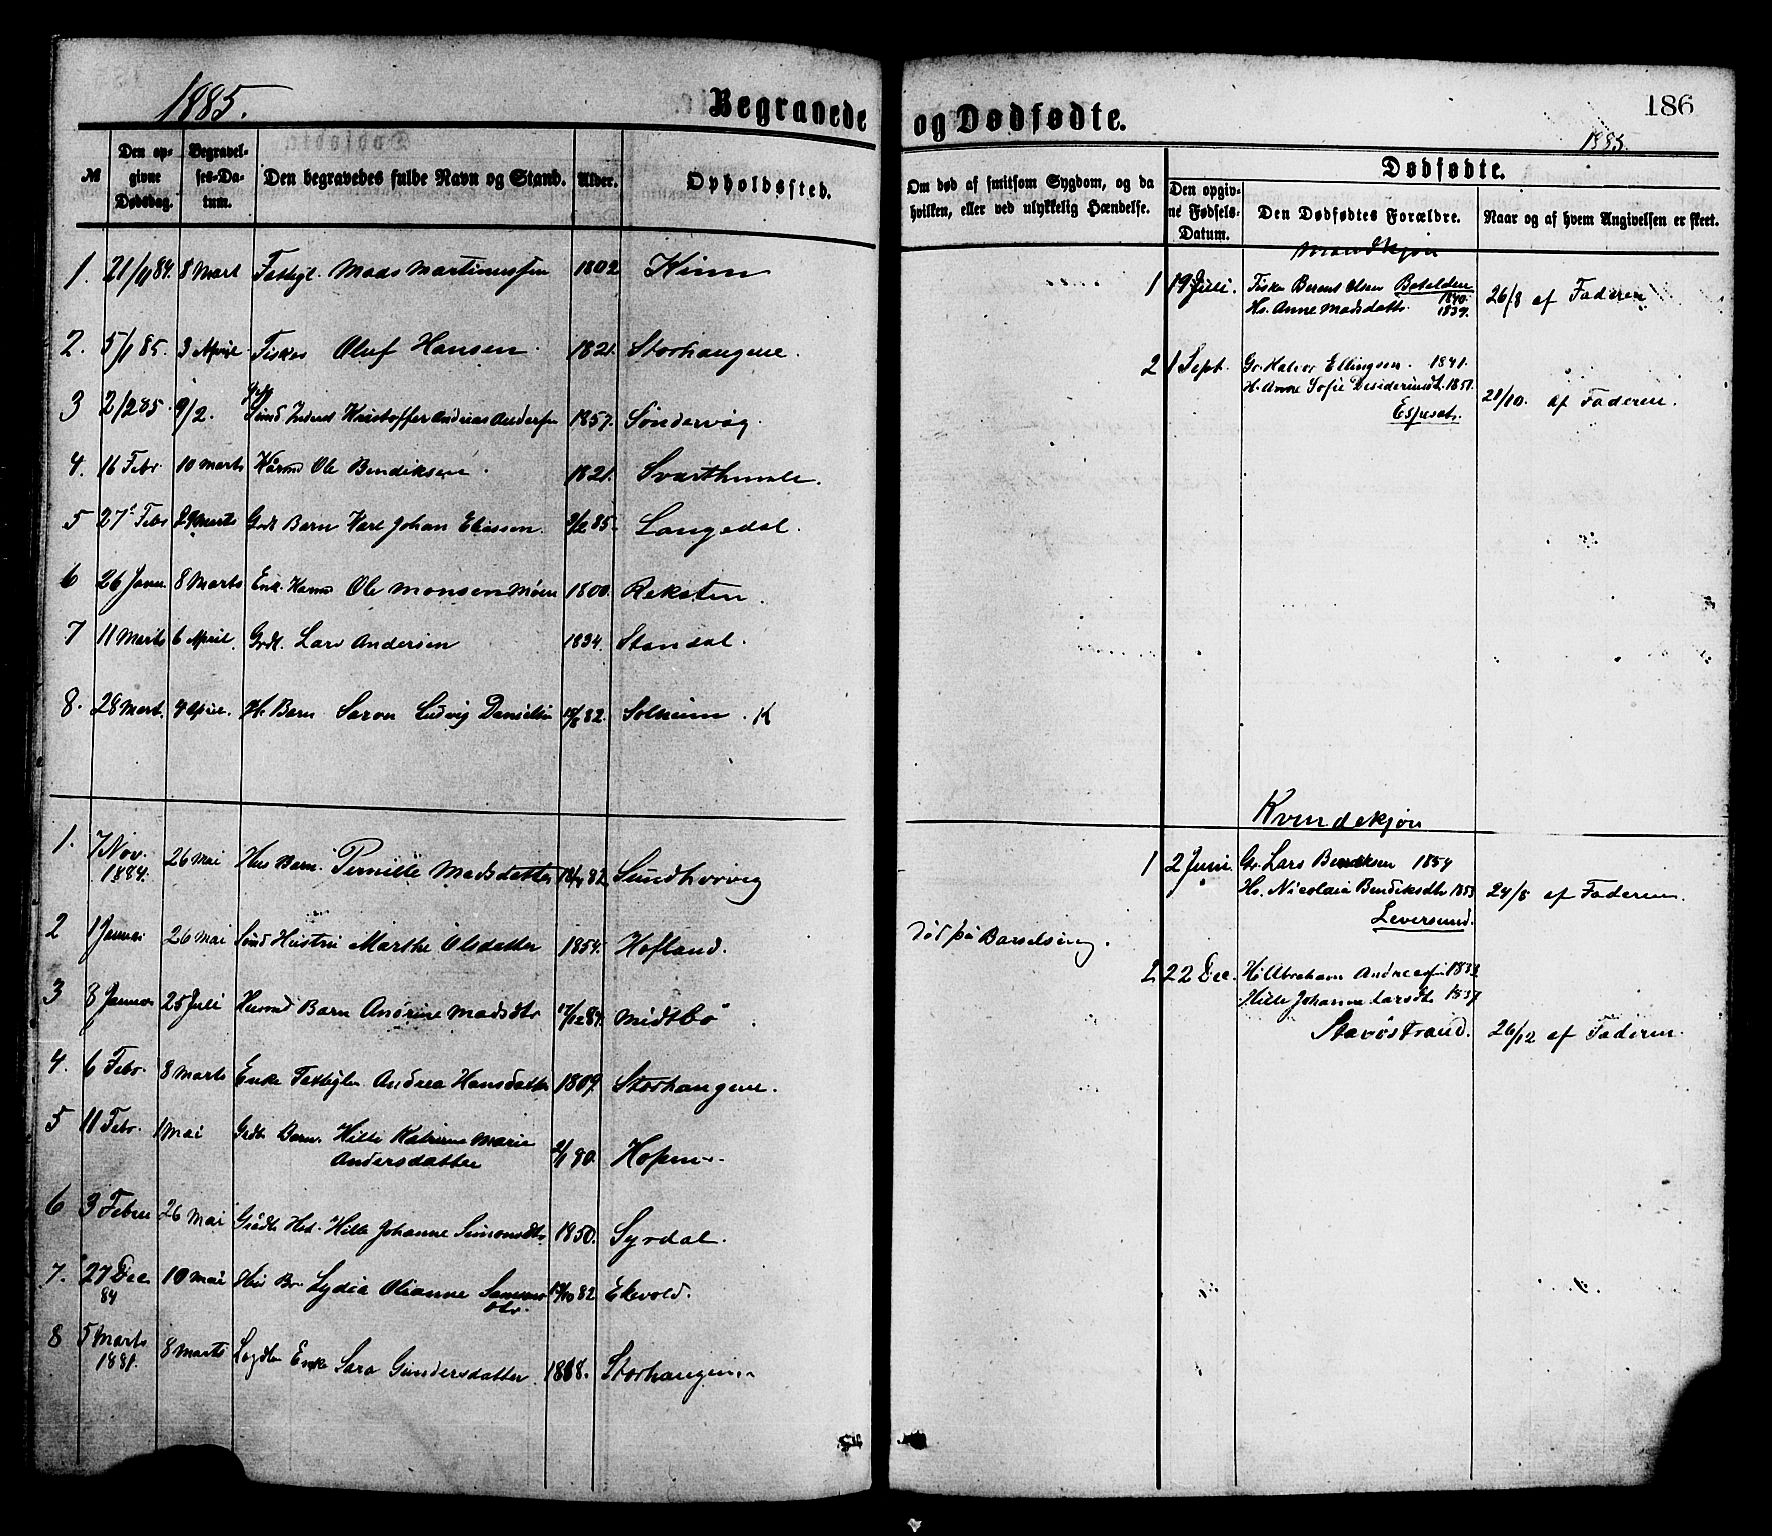 1885.
Begravede
№ Den opgivne Dødsdag. Begravelses-Datum. Den begravedes fulde Navn og Stand. Alder. Opholdssted.
1. 21/11 84. 8 Mart Mads Martinussen 1802 Kinn
2. 5/1 85. 3 April Fisker Oluf Hansen. 1821. Storhaugene.
3 2/2 85. 9/2. Kristoffer Andreas Andersen 1857. Søndervåg.
4. 16 Febr 10 Marts Kårmd Ole Bendiksen. 1821. Svarthumle.
5 27 Febr 29 Marts Grdt Barn Karl Johan Eliassen. 9/2 85. Langedal.
6 26 Janu. 8 Marts Enk. Karmd Ole Monsen Møen 1800. Reksten.
7 11 Marts 6 April. Grdt. Lars Andersen 1834. Standal.
8. 28 Mart. 4 April. H. Barn Saron Ludvig Danielsen 82. Solheim. K
1. 7 Nov. 1884. 26 Mai Hus Barn Pernille Madsdatter 82. Sundhovvig
2 1 Januar 26 Mai Hustru Marthe Olsdatter 1854. Hofland.
3 8 Januar 25 Juli Husmd Barn Andrine Madsdtr 17/12 84. Midtbø
4. 6 Febr. 8 Marts Enke Andrea Hansdatter 1809. Storhaugene.
5 11 Febr. 1 Mai Grdbr Barn. Hille Katrine Marie
Andersdatter 2/1 80. Hopen.
6 3 Febru 26 Mai Hille Johanne Simonsdtr 1850. Syrdal.
7. 27 Dec. 84 10 Mai Lydia Olianne 82 Ekevold.
8 5 Marts 1881. 8 Marts Enke Sara Gundersdatter 1808. Storhaugen.
og Dødfødte.
186
1885.
Om død af smitsom Sygdom, og da hvilken, eller ved ulykkelig Hændelse.
Dødfødte.
Den opgivne Fødsels-Datum. Den Dødfødtes Forældre. Naar og af hvem Angivelsen er skeet.
Mandkjøn
1 19 Juli. Fisker Berent Olsen Botolden 1840.
Hs. Anne Madsdatt. 1839. 26/8 af Faderen
2 1 Sept. Gr. Halvor Ellingsen. 1841.
H. Anne Sofie Desideriusdt. 1851.
Espeset. 28/10. af Faderen.
Kvindekjøn
1 2 Juni. Gr. Lars Bendiksen 1854
Hs. Nicolaia Bendiksdtr 1853
Leversund. 24/8 af Faderen.
Død på Barselseng.
2 22 Dec. H. Abraham Andreassen 1833
Hille Johanne Larsdt. 1837
Stavøstrand. 26/12 af Faderen.